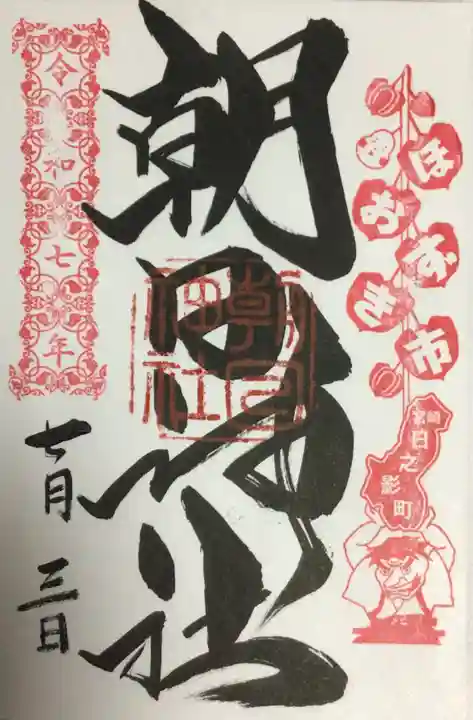 ほおずき市
宮崎
日之影町
朝日神社
朝日
神社
令和七年
七月三日